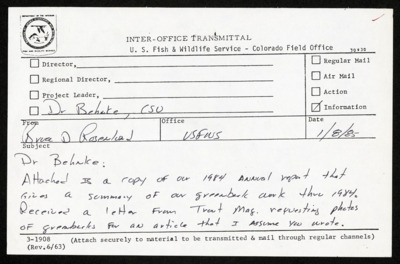 INTER-OFFICE TRANSMITTAL
U. S. Fish & Wildlife Service - Colorado Field Office
Director, Regular Mail
Regional Director, Air Mail
Project Leader, Action
Dr Behnke, CSU Information
From Office Date
Bruce D Rosenlund USFWS 1/8/85
Subject
Dr Behnke:
Attached is a copy of our 1984 annual report that
gives a summary of our greenback work thru 1984.
Received a letter from Trout Mag. requesting photos
of greenbacks for an article that I assume you wrote.
3-1908 (Attach securely to material to be transmitted & mail through regular channels)
(Rev.6/63)